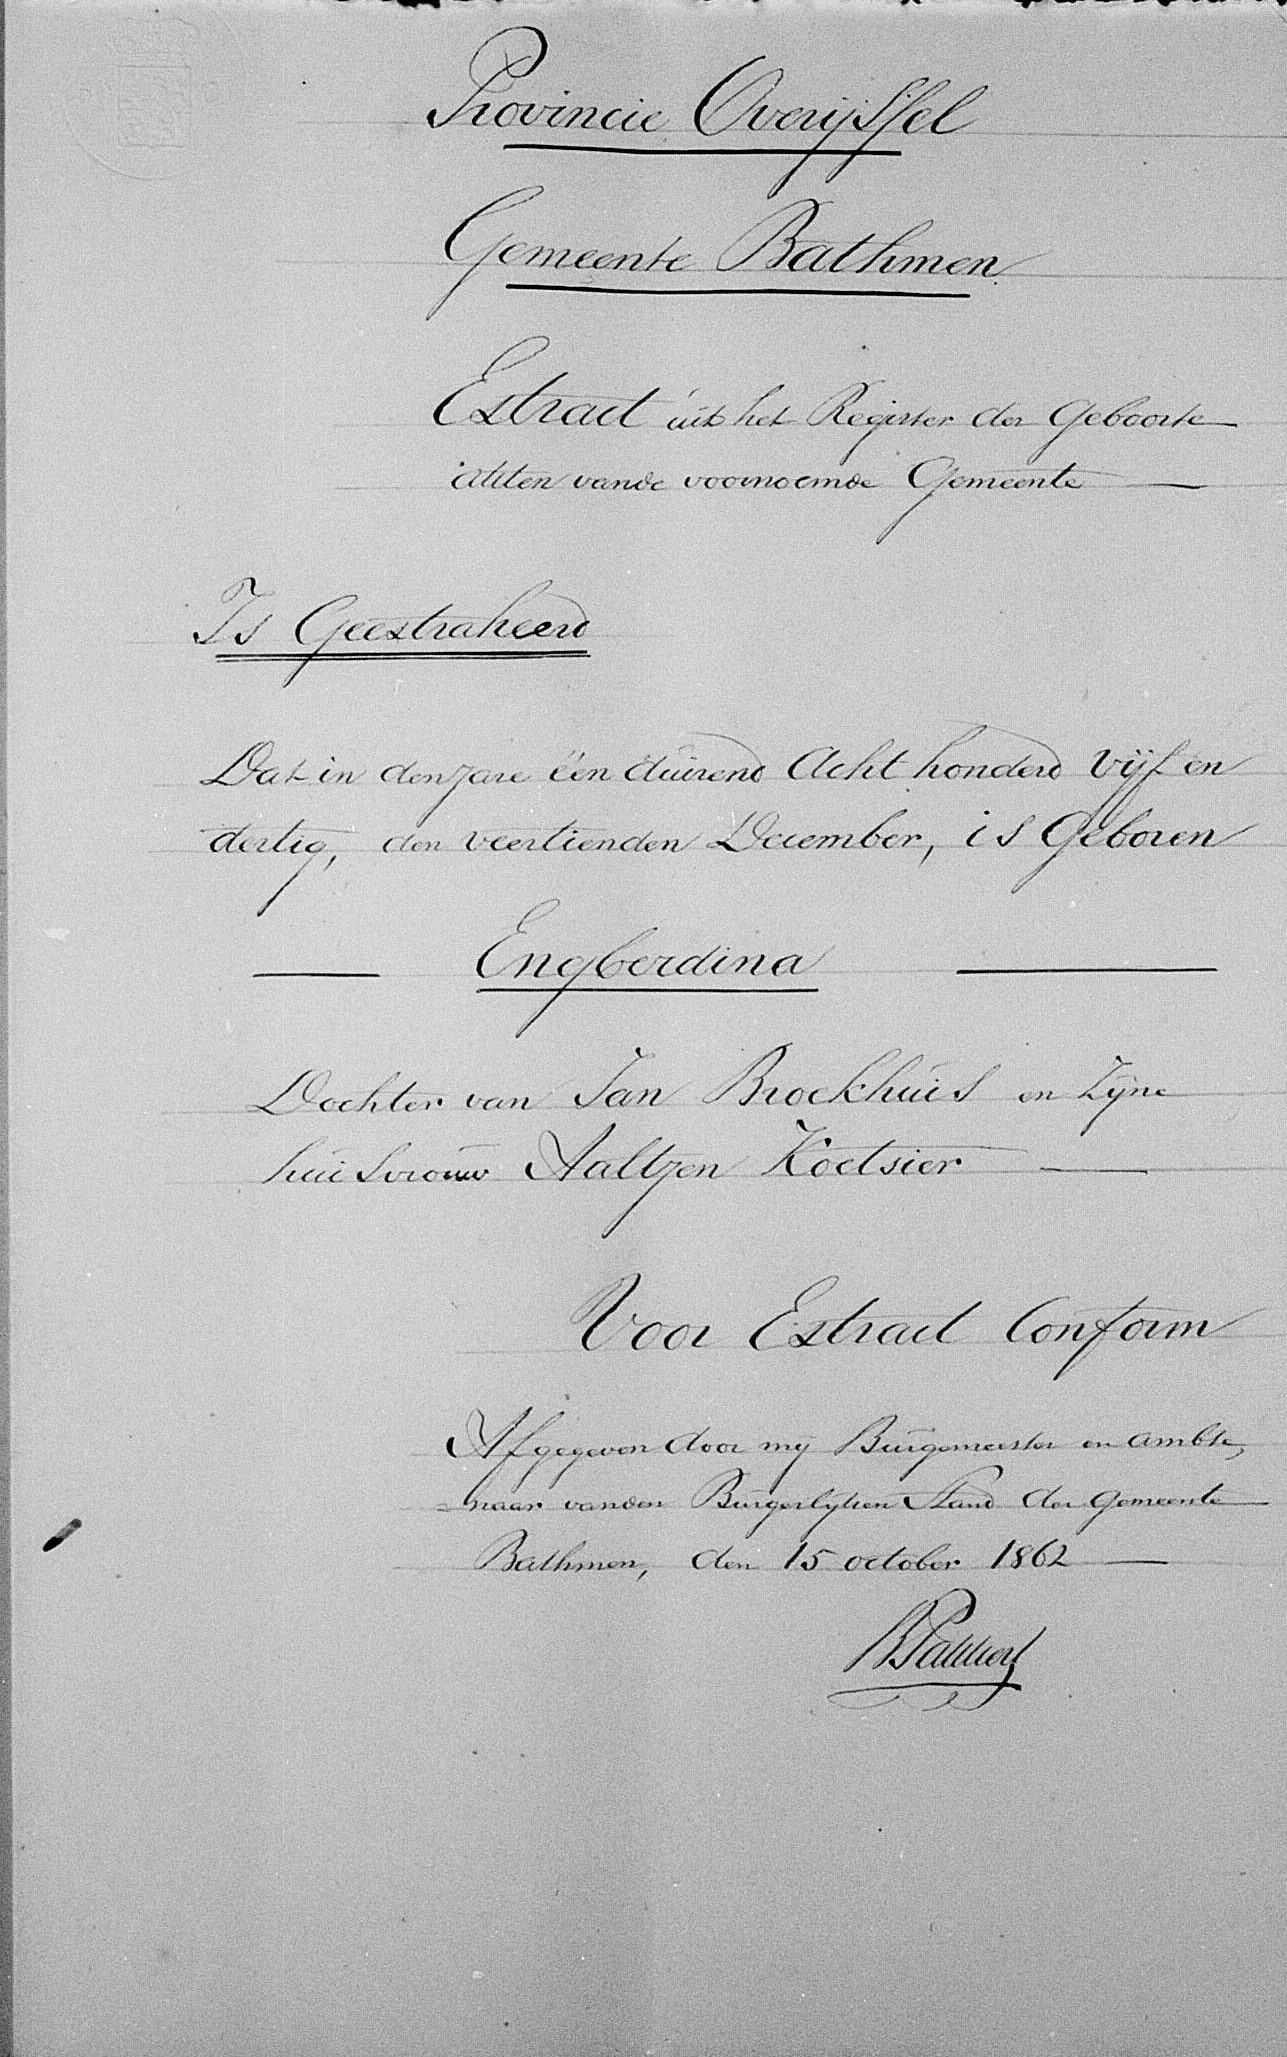 Provincie Overijssel
Gemeente Bathmen
Extract uit het Register der Geboorte
akten van de voornoemde Gemeente
Is Geextraheerd
Dat in den jare één duizend Acht honderd Vijf en
dertig, den veertienden December, is Geboren
Engberdina
Dochter van Jan Broekhuis en Zijne
huisvrouw Aaltjen Koetsier
Voor Extract Conform
Afgegeven door mij Burgemeester en ambte,
naar van den Burgerlijken Stand der Gemeente
Bathmen, den 15 october 1862